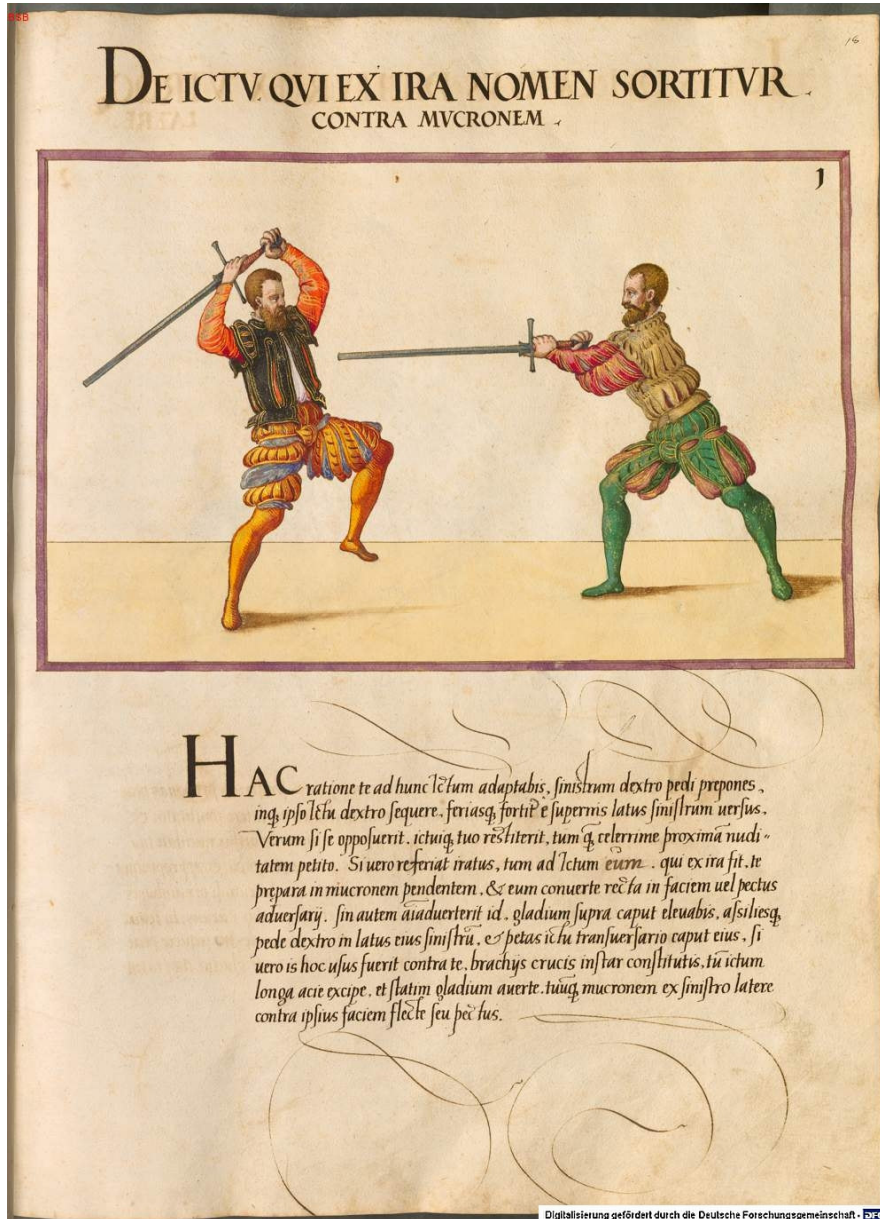 BSB
18
DE ICTV QVI EX IRA NOMEN SORTITVR.
CONTRA MVCRONEM.
1
HAC ratione te ad hunc Ictum adaptabis, sinistrum dextro pedi prepones,
inq; ipso Ictu dextro sequere, feriasq; fortit e supernis latus sinistrum uersus.
Verum si se opposuerit, ictuiq; tuo restiterit, tum q̃ celerrime proximã nudi-
tatem petito. Si uero referiat iratus, tum ad Ictum eum, qui ex ira fit, te
prepara in mucronem pendentem, & eum conuerte recta in faciem uel pectus
aduersarij. sin autem aĩaduerterit id, gladium supra caput eleuabis, assiliesq;
pede dextro in latus eius sinistrũ, & petas ictu transuersario caput eius, si
uero is hoc usus fuerit contra te, brachijs crucis instar constitutis, tũ ictum
longa acie excipe, et statim gladium auerte, tuũq; mucronem ex sinistro latere
contra ipsius faciem flecte seu pectus.
Digitalisierung gefördert durch die Deutsche Forschungsgemeinschaft - DFG